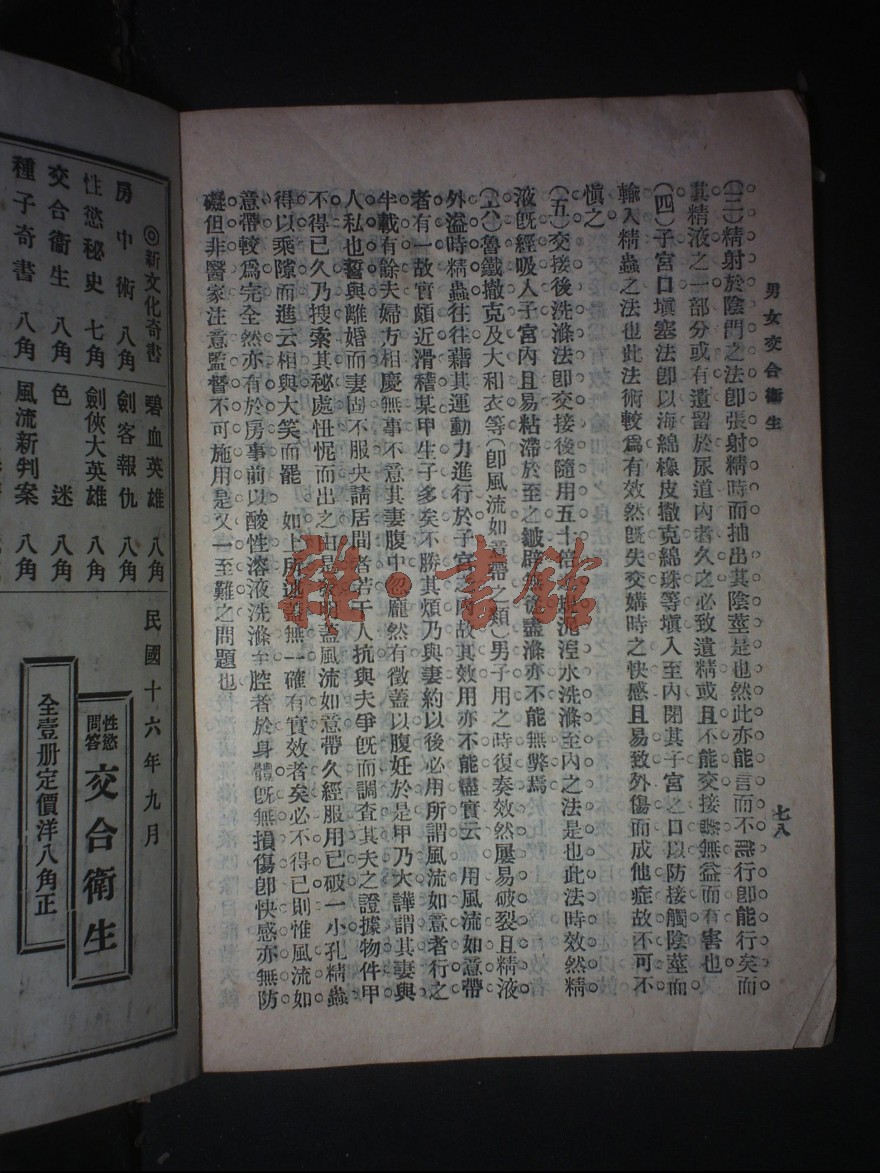 男女交合衞生
七八
(三)精射於陰門之法卽張射精時而抽出其陰莖是也然此亦能言而不無行卽能行矣而
其精液之一部分或有遺留於尿道內者久之必致遺精或且不能交接無益而有害也
(四)子宮口塡塞法卽以海綿橡皮撒克綿珠等塡入至內閉其子宮之口以防接觸陰莖而
輸入精蟲之法也此法術較爲有效然旣失交媾時之快感且易致外傷而成他症故不可不
愼之
(五)交接後洗滌法卽交接後隨用五十倍水洗滌至內之法是也此法時效然精
液旣經吸入子宮內且易粘滯於至之皺襞後盡滌亦不能無弊焉
(六)魯鐵撒克及大和衣等(卽風流如意帶之類)男子用之時復奏效然屢易破裂且精液
外溢時精蟲往往藉其運動力進行於子宮之內故其效用亦不能盡實云 用風流如意帶
者有一故實頗近滑稽某甲生子多矣不勝其煩乃與妻約以後必用所謂風流如意者行之
半載有餘夫婦方相慶無事不意其妻腹中忽龐然有徵蓋以腹妊於是甲乃大譁謂其妻與
人私也誓與離婚而妻固不服央請居間者若干人抗與夫爭旣而調查其夫之證據物件甲
不得已久乃搜索其秘處忸怩而出之由是發明蓋風流如意帶久經服用已破一小孔精蟲
得以乘隙而進云相與大笑而罷 如上所述蓋無一確有實效者矣必不得已則惟風流如
意帶較爲完全然亦有於房事前以酸性溶液洗滌腔者於身體旣無損傷卽快感亦無防
礙但非醫家注意監督不可施用是又一至難之問題也
雜·書館
◎新文化奇書
房中術 八角
性慾秘史 七角
交合衞生 八角
種子奇書 八角
碧血英雄 八角
劍客報仇 八角
劍俠大英雄 八角
色迷 八角
風流新判案 八角
民國十六年九月
性慾問答 交合衞生
全壹册定價洋八角正